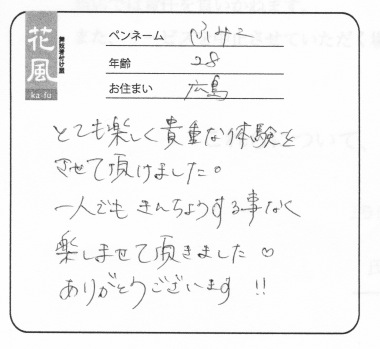 花風
ka-fu
舞妓着付け紙
ペンネーム ふみこ
年齢 28
お住まい 広島
とても楽しく貴重な体験を
させて頂けました。
一人でも きんちょうする事なく
楽しませて頂きました ♡
ありがとうございます !!